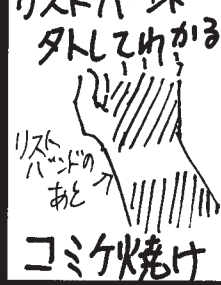 リストバンド
外してわかる
リスト
バンドの
あと
コミケ焼け